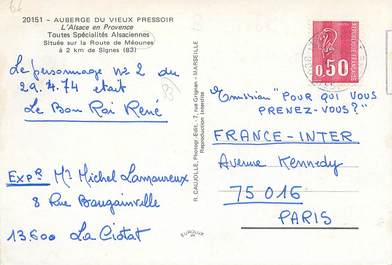 20151 - AUBERGE DU VIEUX PRESSOIR
L'Alsace en Provence
Toutes Spécialités Alsaciennes
Située sur la Route de Méounes
à 2 km de Signes (83)
Le personnage n=2 du
29.4.74 était
Le Bon Roi René
Expr Mr Michel Lamoureux
8 Rue Bougainville
13.600 La Ciotat
R. CAUJOLLE, Photogr.-Edit. - 7, rue Grignan - MARSEILLE
Reproduction interdite
REPUBLIQUE FRANÇAISE
0,50
Emission "POUR QUI VOUS
PRENEZ-VOUS?"
FRANCE-INTER
Avenue Kennedy
75016
PARIS